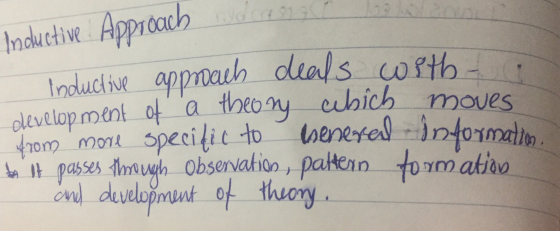 Inductive Approach
Inductive approach deals with -
development of a theory which moves
from more specific to general information.
It passes through observation, pattern formation
and development of theory.